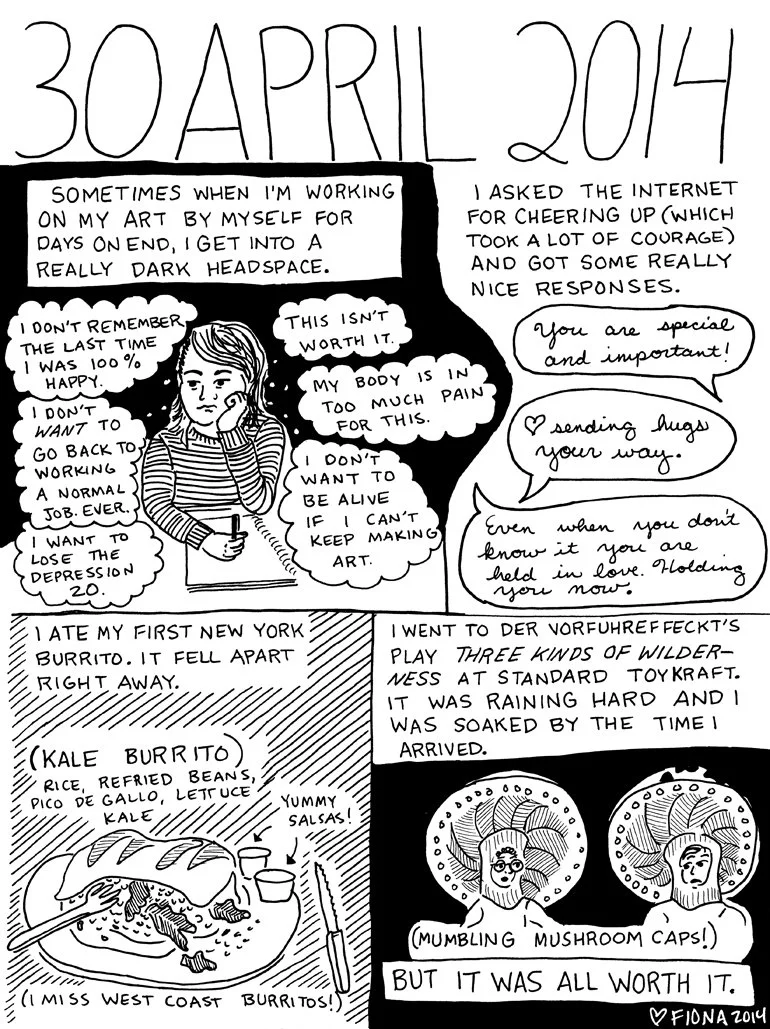 30 APRIL 2014
SOMETIMES WHEN I'M WORKING
ON MY ART BY MYSELF FOR
DAYS ON END, I GET INTO A
REALLY DARK HEADSPACE.
I DON'T REMEMBER
THE LAST TIME
I WAS 100%
HAPPY.
THIS ISN'T
WORTH IT.
MY BODY IS IN
TOO MUCH PAIN
FOR THIS.
I DON'T
WANT TO
GO BACK TO
WORKING
A NORMAL
JOB. EVER.
I DON'T
WANT TO
BE ALIVE
IF I CAN'T
KEEP MAKING
ART.
I WANT TO
LOSE THE
DEPRESSION
20.
I ASKED THE INTERNET
FOR CHEERING UP (WHICH
TOOK A LOT OF COURAGE)
AND GOT SOME REALLY
NICE RESPONSES.
You are special
and important!
♡ sending hugs
your way.
Even when you don't
know it you are
held in love. Holding
you now.
I ATE MY FIRST NEW YORK
BURRITO. IT FELL APART
RIGHT AWAY.
(KALE BURRITO)
RICE, REFRIED BEANS,
PICO DE GALLO, LETTUCE
KALE
YUMMY
SALSAS!
(I MISS WEST COAST BURRITOS!)
I WENT TO DER VORFUHREFFECKT'S
PLAY THREE KINDS OF WILDER-
NESS AT STANDARD TOYKRAFT.
IT WAS RAINING HARD AND I
WAS SOAKED BY THE TIME I
ARRIVED.
(MUMBLING MUSHROOM CAPS!)
BUT IT WAS ALL WORTH IT.
♡ FIONA 2014